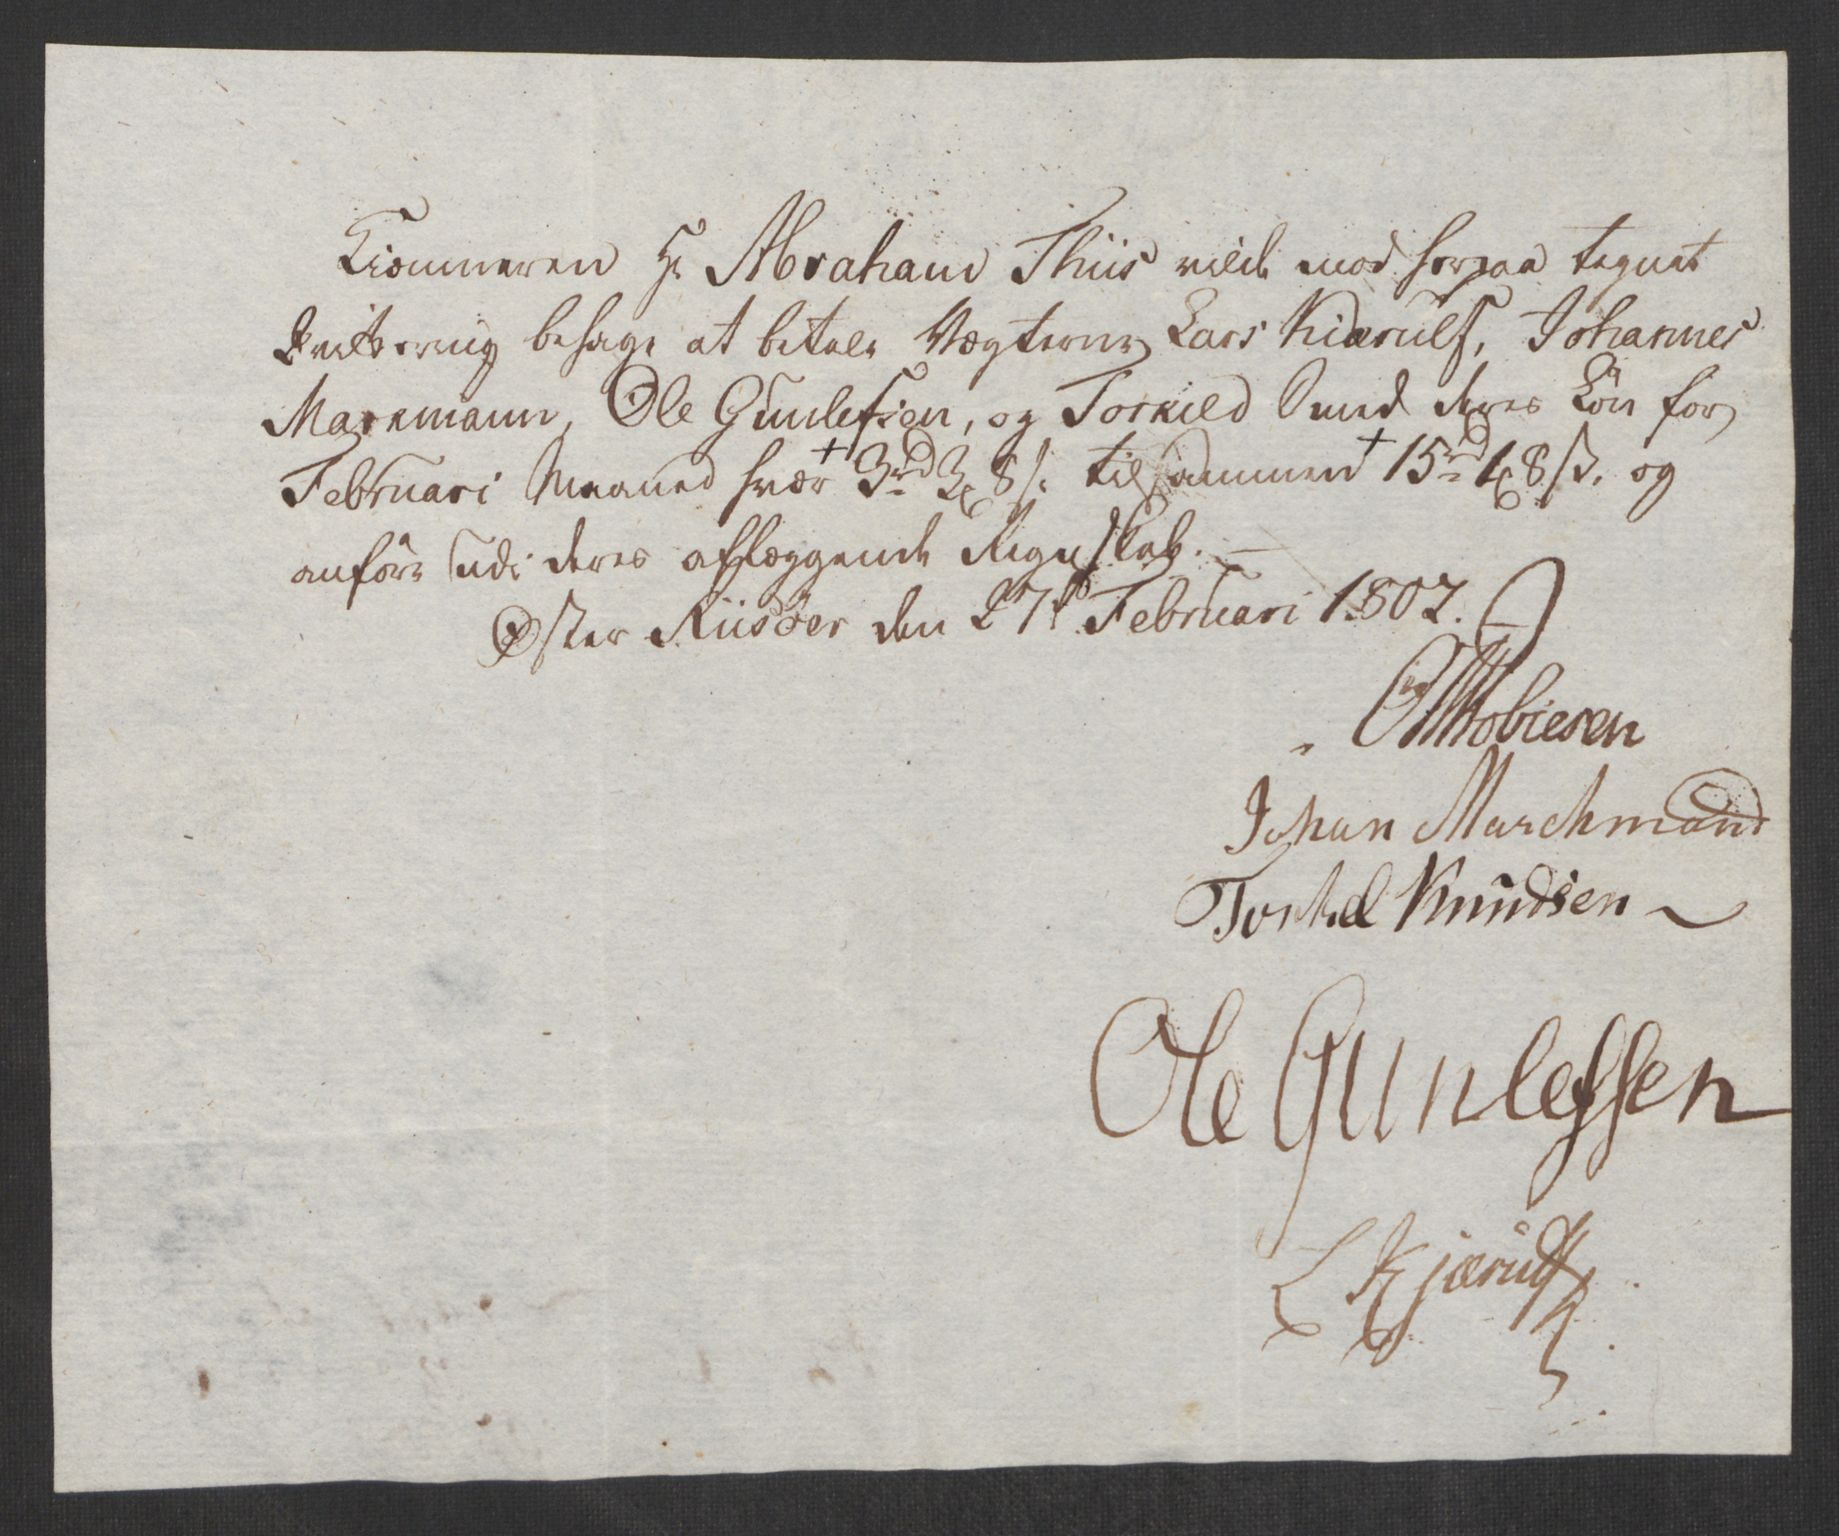 Kiæmneren Hr Abraham Thiis vilde mod herpaa tegnet
Qvittering behage at betale Vægterne Lars Kiærulf, Johannes
Markmann, Ole Gunlefsen, og Torkild Knud deres Lön for
Februari Maaned hvær 3rd 3 ort 8 s. tilsammen 15rd 1 ort 8 ß. og
anföre udi deres aflæggende Regnskab. —
Öster Riisöer den 27de Februari 1802. —
Tobiesen
Johan Marchmand
Torkel Knudsen
Ole Gunlefsen
L Kjærulf